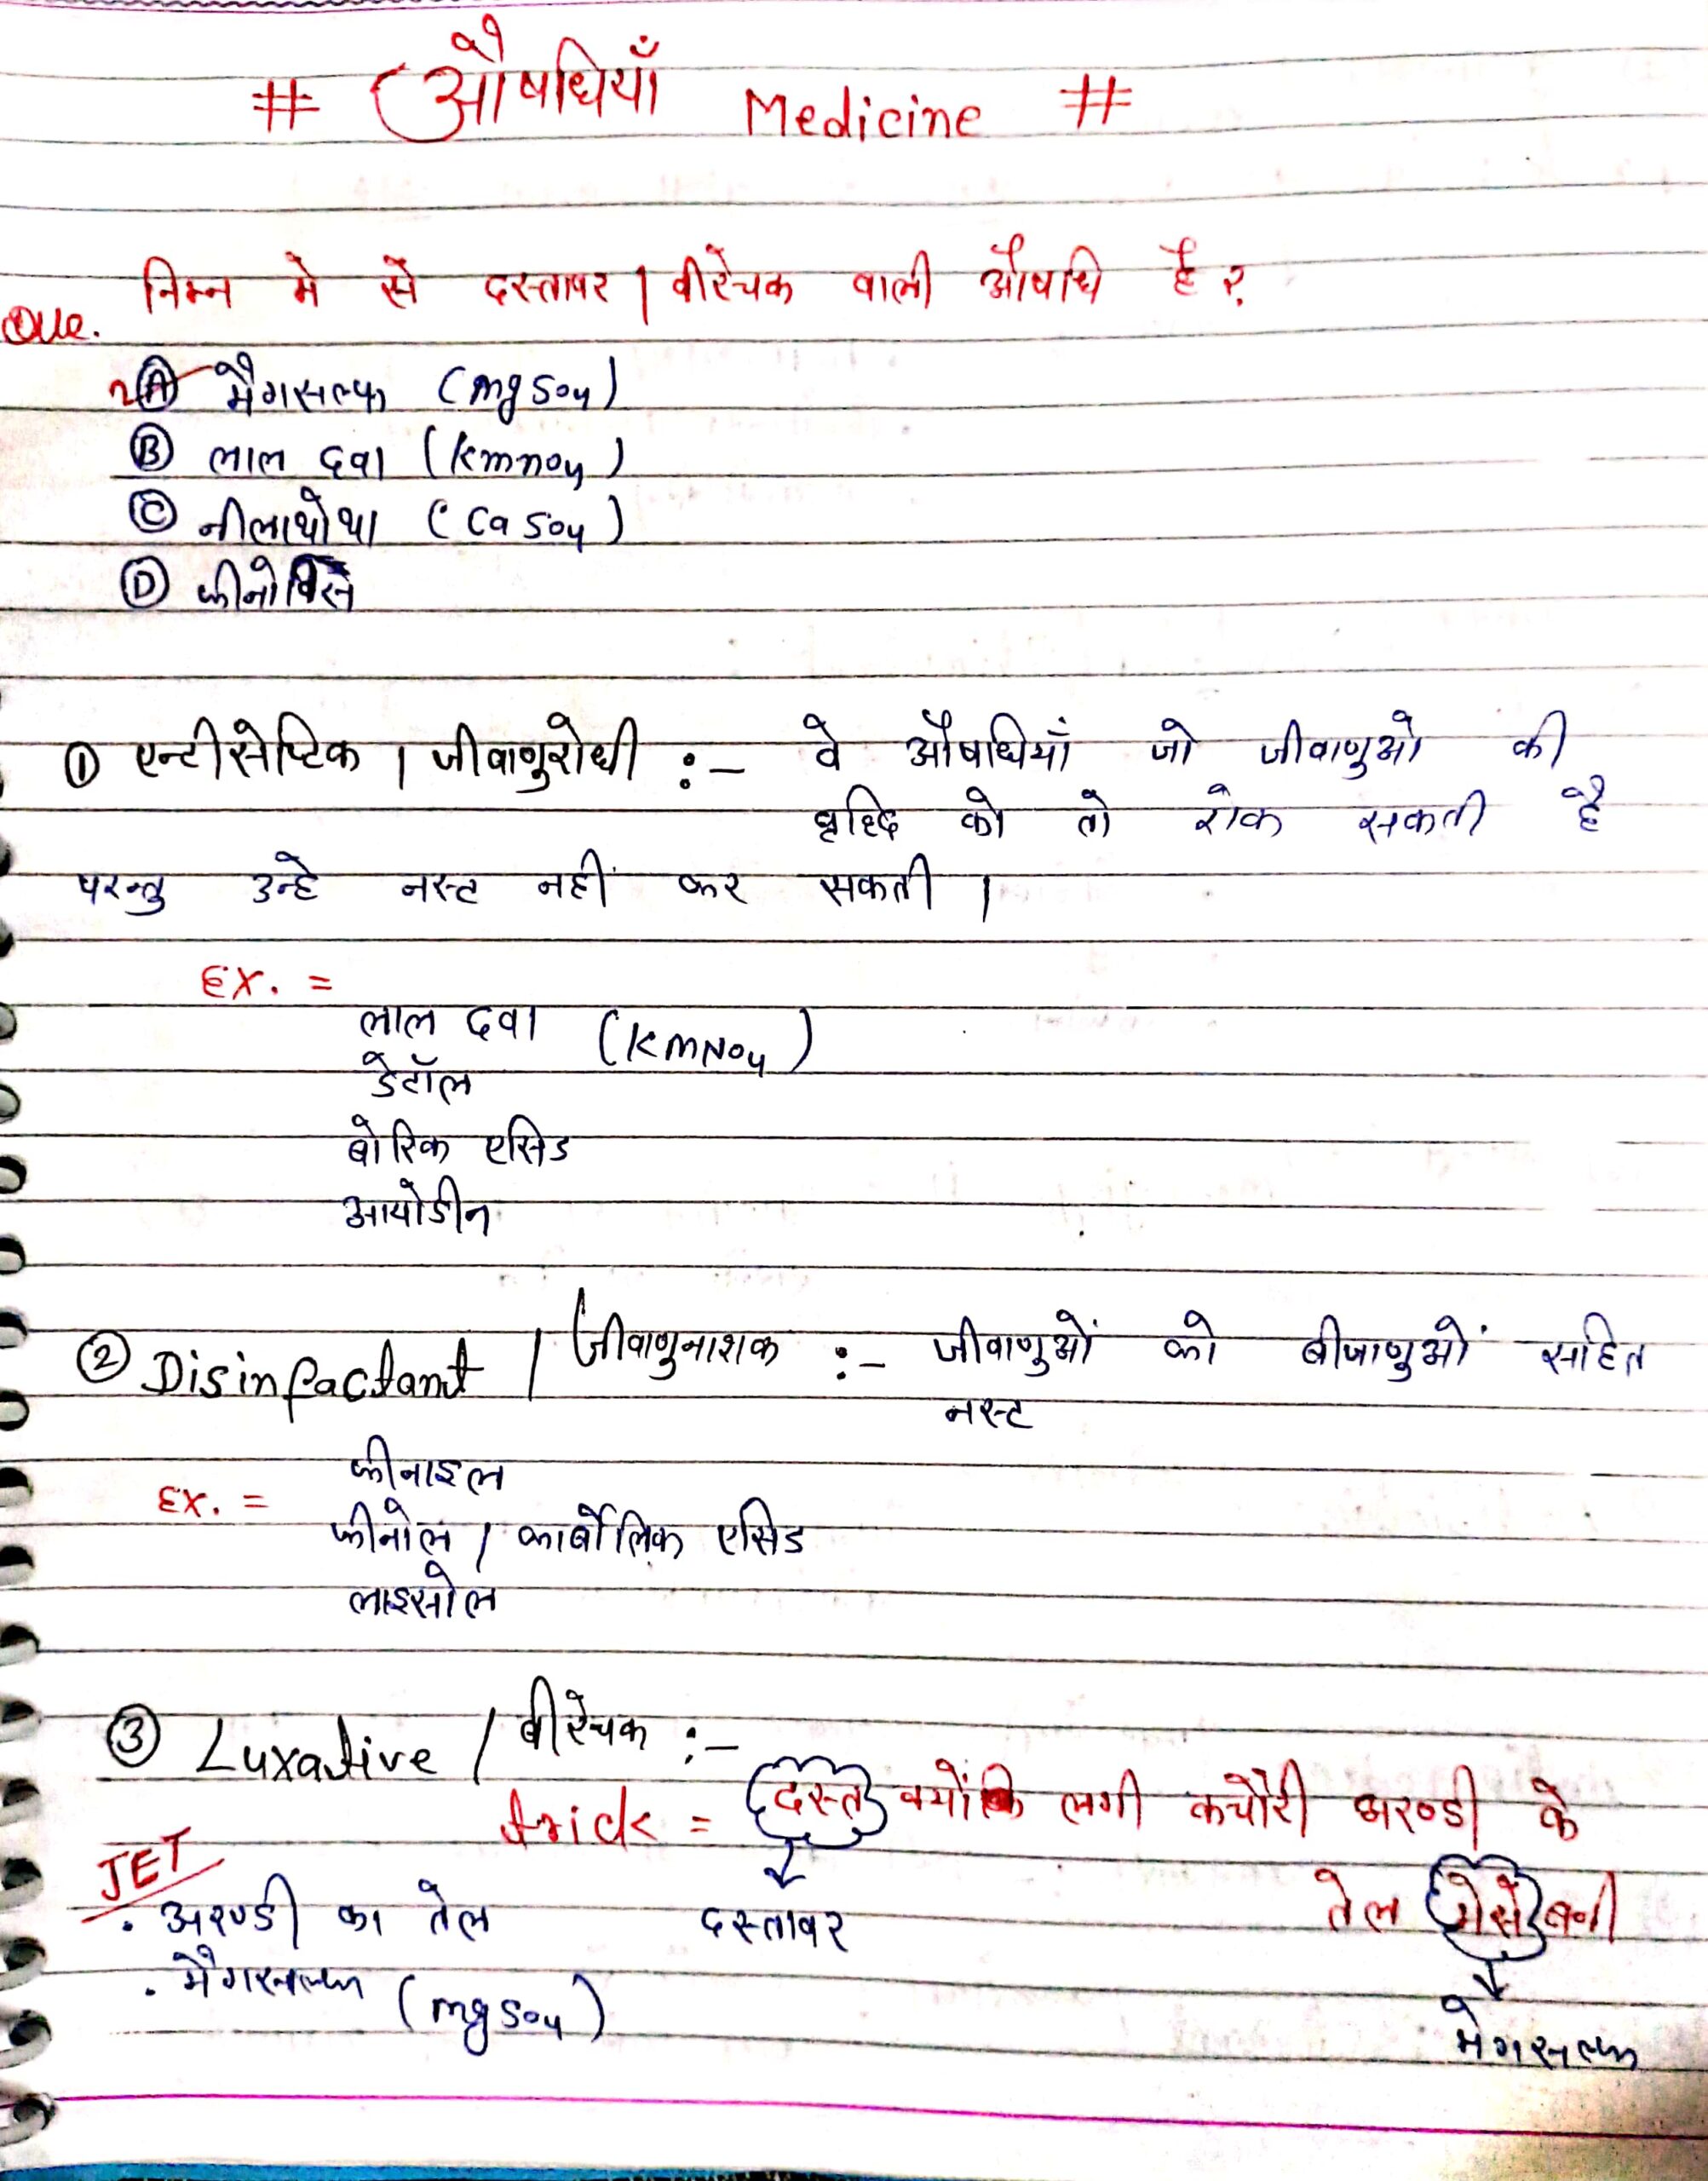 # औषधियाँ Medicine #
निम्न मे से दस्तावर / वीरेचक वाली औषधि है ?
Que.
A मैगसल्फ (mgso4)
B लाल दवा (kmno4)
C नीलाथोथा (Caso4)
D फीनो
① एन्टीसेप्टिक / जीवाणुरोधी :- वे औषधियाँ जो जीवाणुओ की
वृध्दि को तो रोक सकती है
परन्तु उन्हे नस्ट नहीं कर सकती ।
Ex. =
लाल दवा (KMNO4)
डेटॉल
बोरिक एसिड
आयोडीन
② Disinfactant / जीवाणुनाशक :- जीवाणुओं को बीजाणुओं सहित
नस्ट
फीनाइल
Ex. =
फीनोल / कार्बोलिक एसिड
लाइसोल
③ Luxative / वीरेचक :-
trick = दस्त क्योंकि लगी कचौरी अरण्डी के
तेल मेसे बनी
JET
• अरण्डी का तेल दस्तावर
• मैगसल्फ (mgso4)
मेगसल्फ